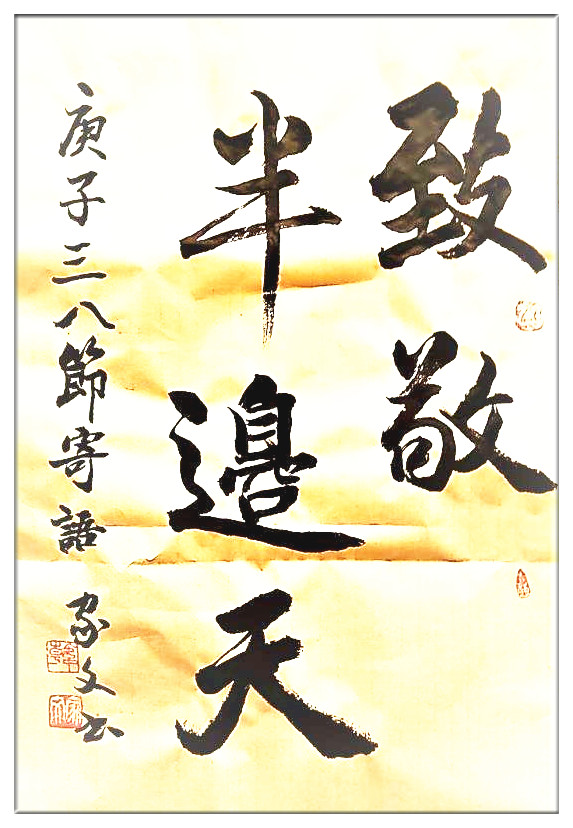 致敬
半邊天
庚子三八節寄語
家文书